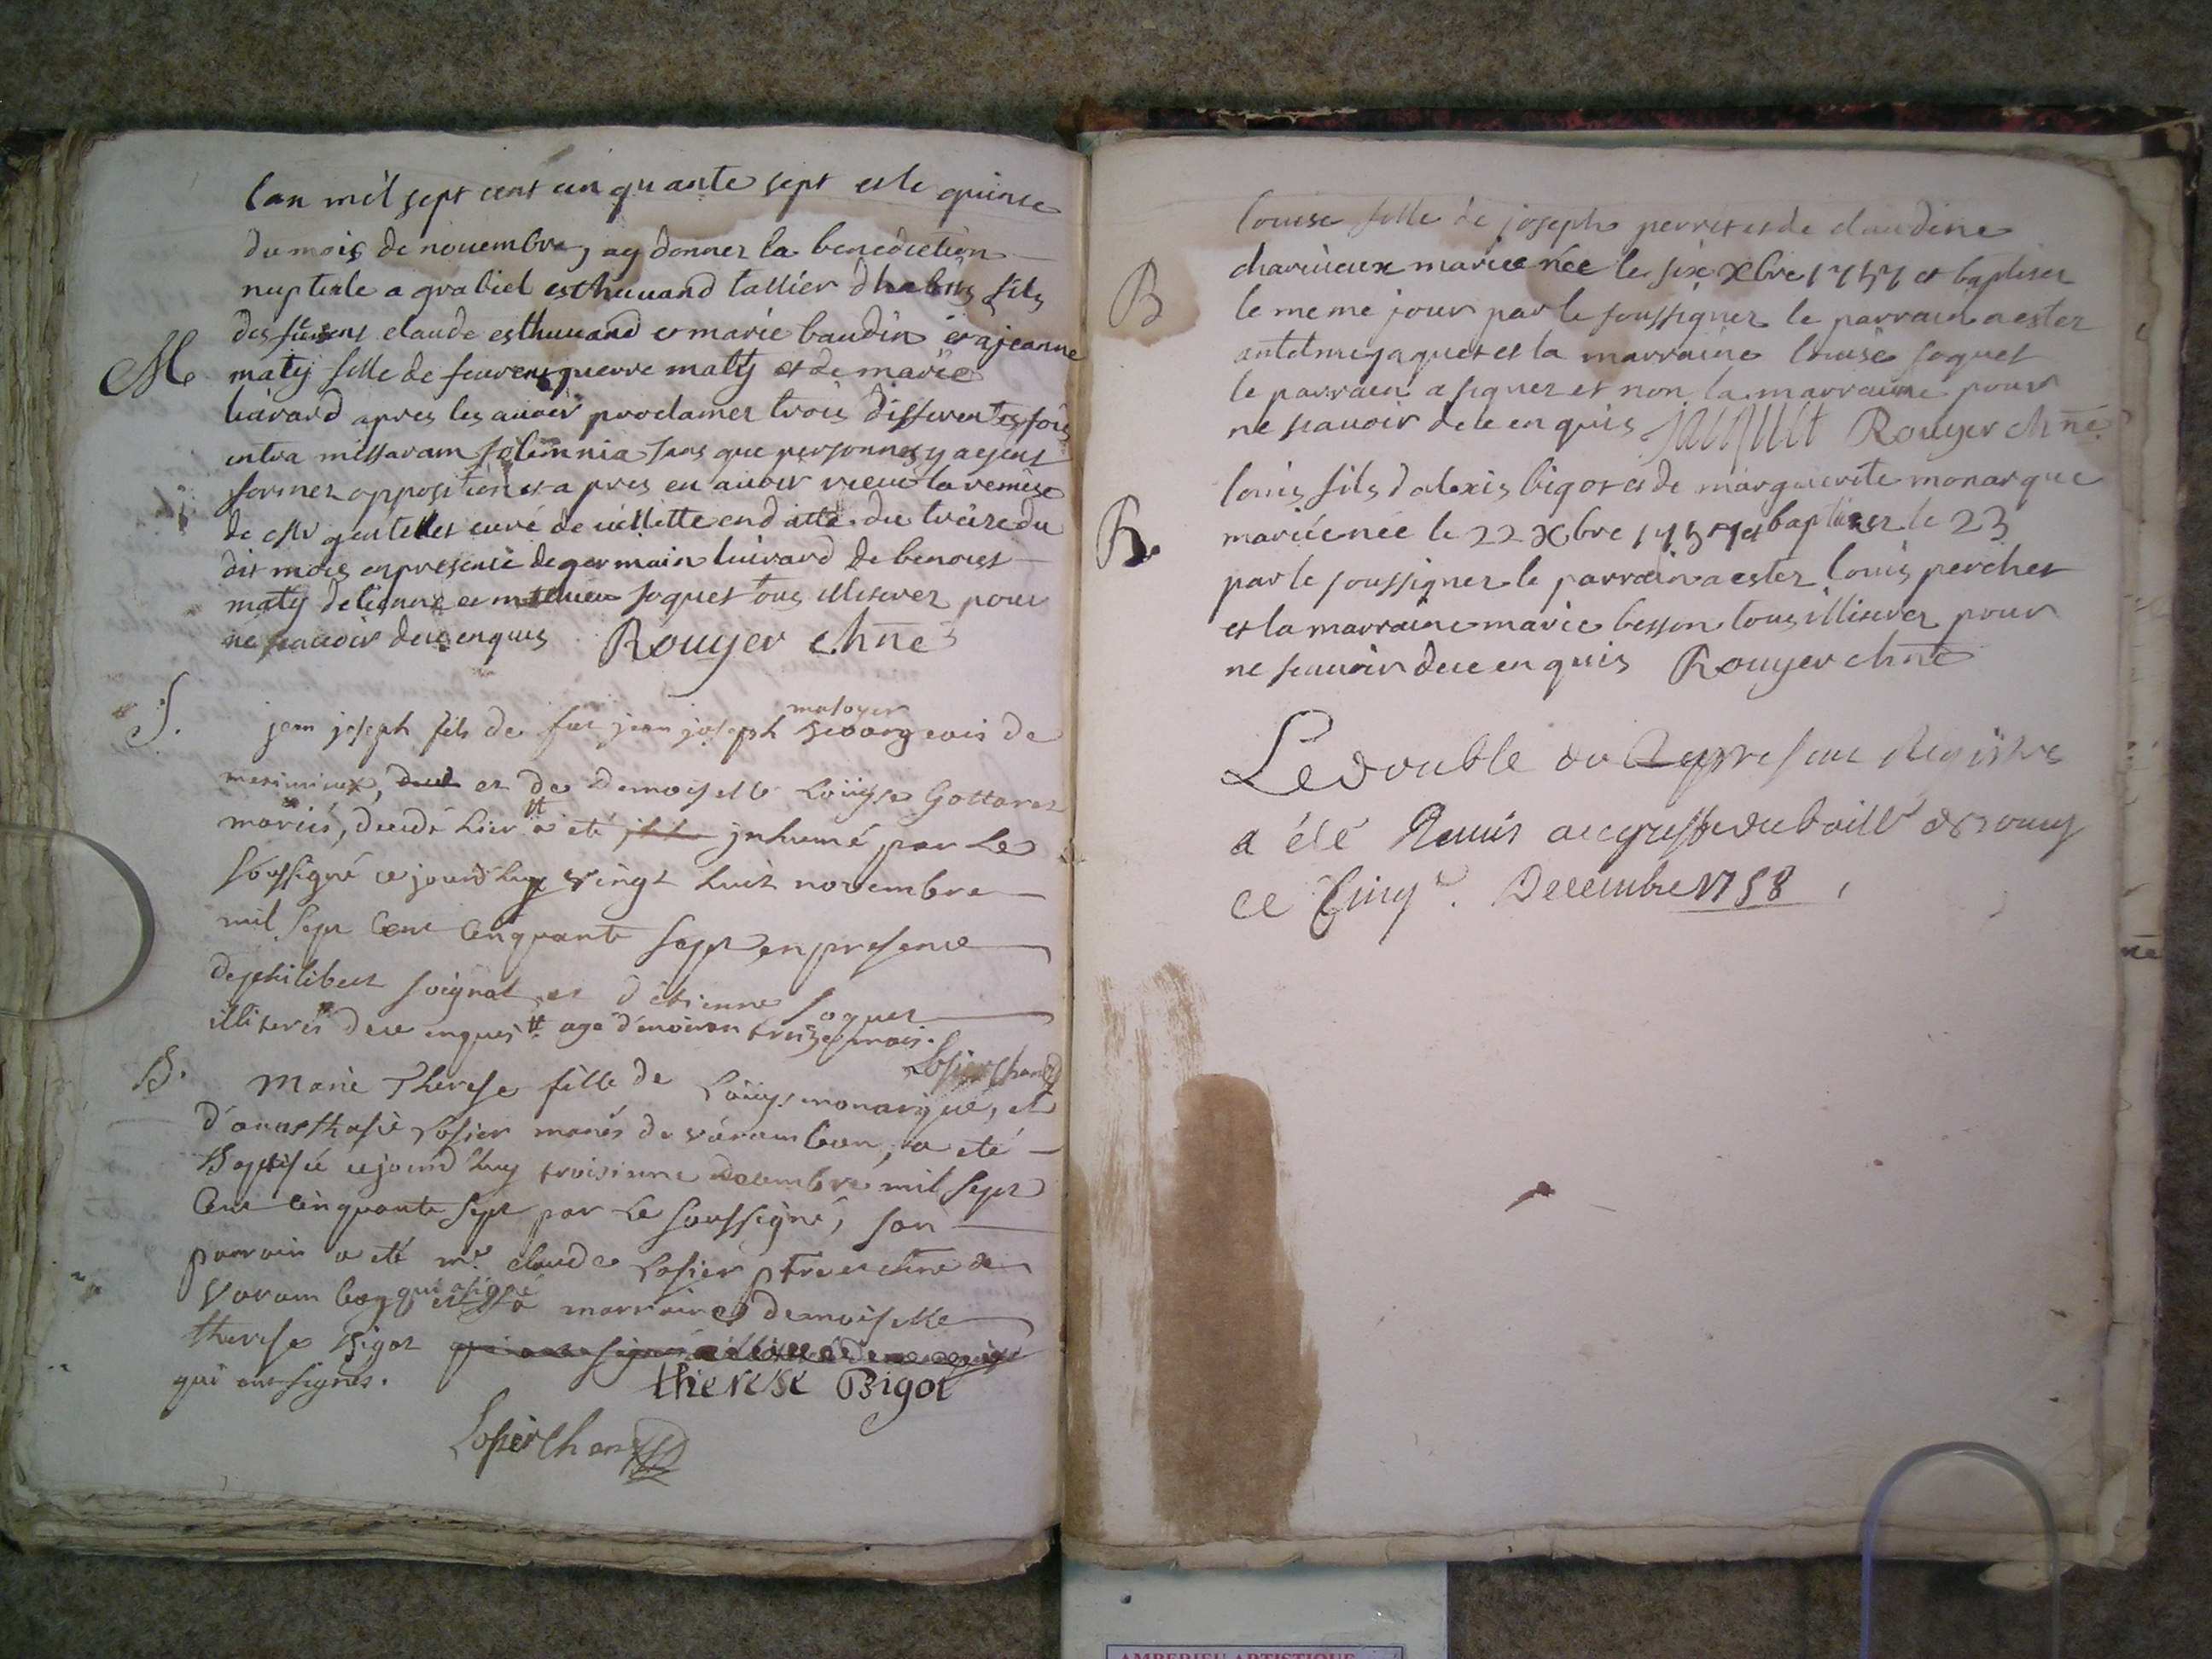 lan mil sept cent cinquante sept et le quinze
du mois de nouembre, ay donner la benediction
nuptiale a grabiel esthuuand tallier d'habits fils
des claude esthuuand et marie baudin et a jeanne
M
maty fille de maty et de marie
liuvard apres les auoir proclamer trois differentes fois
intra missarum solemnia sans que personnes y ayent
former opposition et apres en auoir receu la remise
de curé de villette en datte du treize du
dit mois en presence de germain liuvard de benoist
maty detienne et soquet tous illiterez pour
ne scauoir de ce enquis Rouyer chne
S.
masoyer
jean joseph fils de feu jean joseph Bourgeois de
meximieux, et de Demoiselle Loüyse Gottaret
mariés, decedé hier # a eté inhumé par Le
soussigné ce jourd'huy vingt huit novembre
mil sept Cent Cinquante sept en presence
de philibert soignat et d'etienne soquet
illiterés de ce enquis # agé d'environ treize mois.
Losier chan
B.
Marie Therese fille de Loüys monarque, et
d'anasthasie Losier mariés de varambon, a eté
Baptisée ce jourd'huy troisieme decembre mil sept
Cent Cinquante sept par Le soussigné, son
parrain a eté mr. claude Losier ptre et chne de
qui a signé
Varambon et sa marraine Demoiselle
therese Bigot
qui ont signés.
therese Bigot
Losier chan
louise fille de joseph perret et de claudine
charvieux mariee née le six Xbre 1757 et baptiser
B
le meme jour par le soussigner le parrain a ester
jaquet et la marraine louise soquet
le parrain a signer et non la marraine pour
ne scauoir de ce enquis Rouyer chne
louis fils d'alexis bigot et de marguerite monarque
B.
mariée née le 22 Xbre 1757 et baptiser le 23
par le soussigner le parrain a ester louis perchet
et la marraine marie besson tous illiterez pour
ne scauoir de ce enquis Rouyer chne
Le double du present Registre
a été Remis au greffe du baill
ce Cinq e. Decembre 1758
AMBERIEU ARTISTIQUE